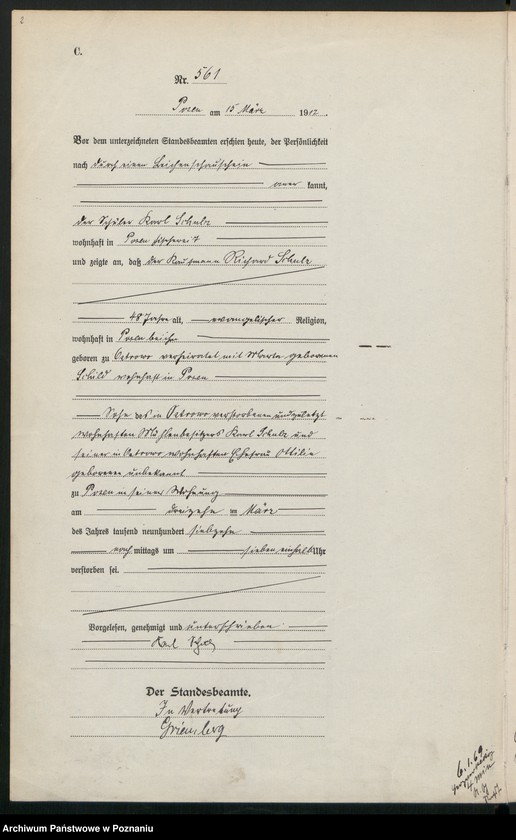 2
C.
Nr. 561
Posen am 15 März 1912.
Vor dem unterzeichneten Standesbeamten erschien heute, der Persönlichkeit
nach durch einen Leichenschauschein
aner kannt,
der Schüler Karl Schulz
wohnhaft in Posen 7
und zeigte an, daß der Kaufmann Richard Schulz
48 Jahre alt, evangelischer Religion,
wohnhaft in Posen bei ihm
geboren zu Ostrowo verheiratet mit Marta geborenen
Schild wohnhaft in Posen
Sohn des in Ostrowo verstorbenen und zuletzt
wohnhaften Mühlenbesitzers Karl Schulz und
seiner in Ostrowo wohnhaften Ehefrau Ottilie
geborenen unbekannt
zu Posen in seiner Wohnung
am dreizehn ten März
des Jahres tausend neunhundert siebzehn
nach mittags um sieben einhalb Uhr
verstorben sei.
Vorgelesen, genehmigt und unterschrieben
Karl Schulz
Der Standesbeamte.
In Vertretung
6.1.69.
Archiwum Państwowe w Poznaniu